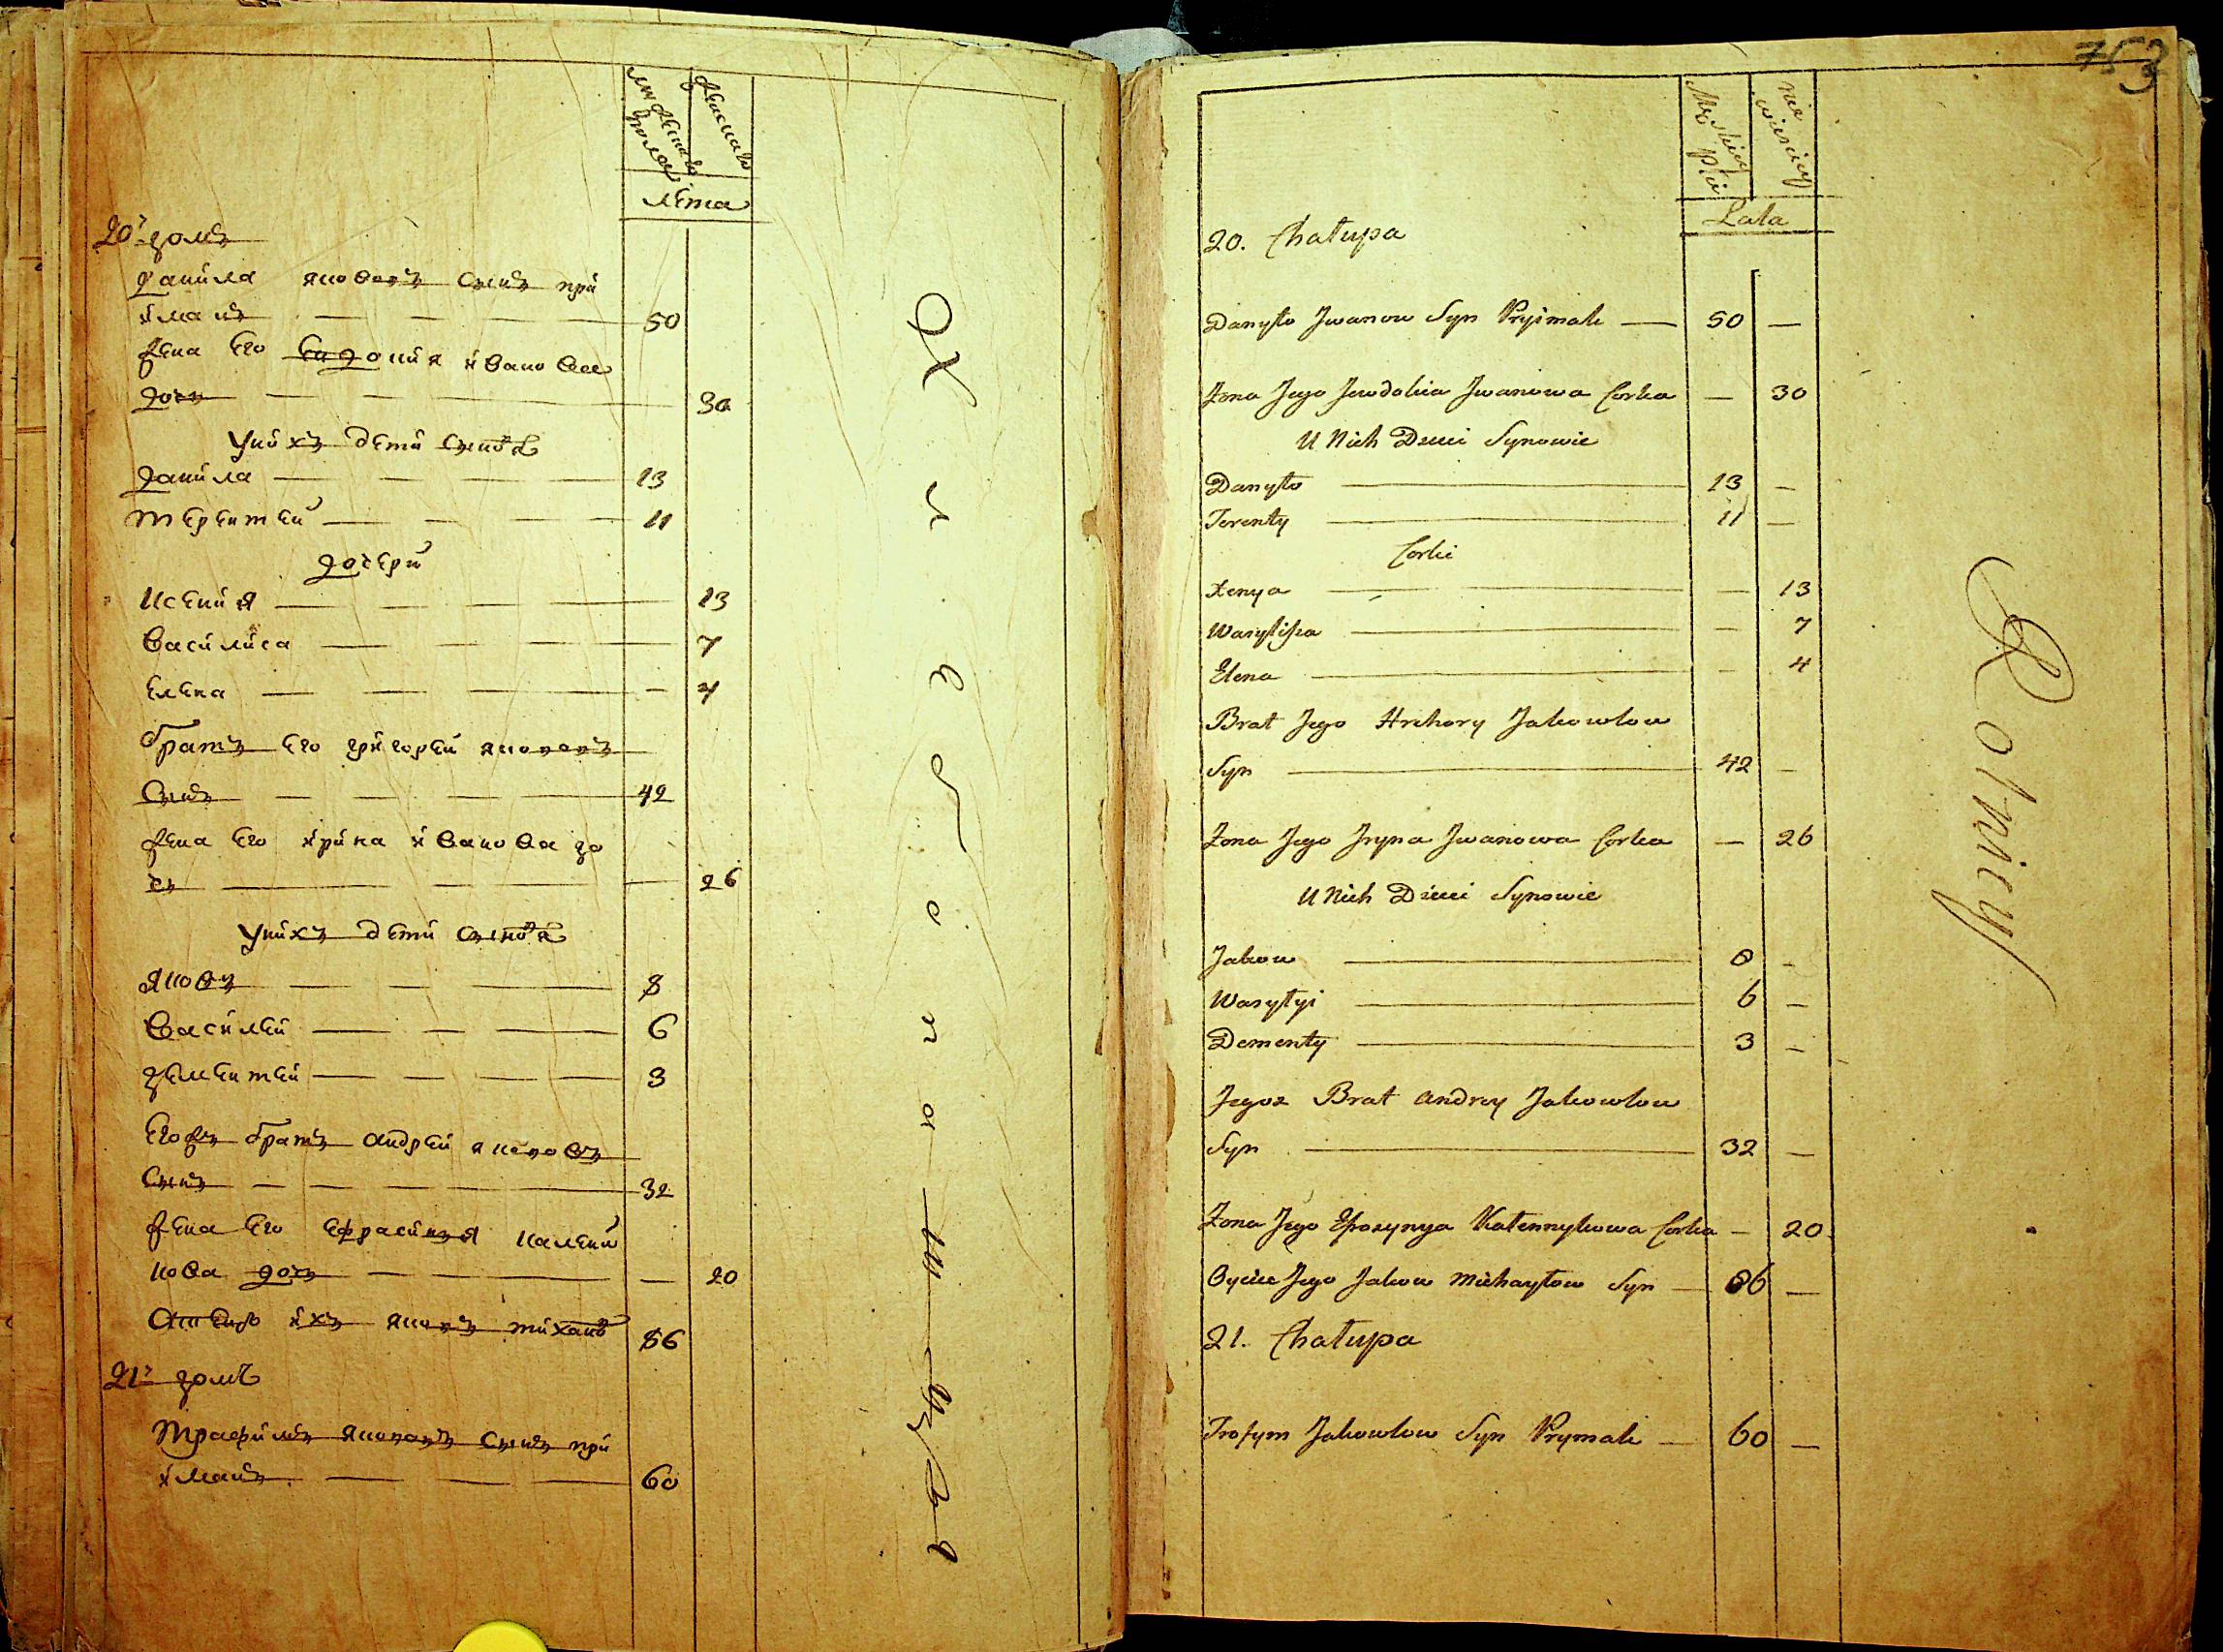 мужеска полу
женска
лета
20й домъ
данила яковлевъ сынъ при
ймакъ 50
жена его евдокия иванова
дочь 30
у нихъ дети сыновя
данила 13
терентей 11
дочери
ксения 13
василиса 7
елена 4
братъ его григорей яковлевъ
сынъ 42
жена его ирина иванова до
чь 26
у нихъ дети сыновя
яковъ 8
василей 6
дементей 3
егожъ братъ андрей яковлевъ
сынъ 32
жена его ефрасиния калени
кова дочь 20
отецъ ихъ яковъ 86
21й домъ
трафимъ яковлевъ сынъ при
ймакъ 60
753
Męskiey Płci
niewiesciey
Lata
20. Chałupa
Danyło Jwanow Syn Pryimak 50
Żona Jego Jewdokia Jwanowa Corka 30
U Nich Dzieci Synowie
Danyło 13
Terenty 11
Corki
Xenya 13
Wasylissa 7
Elena 4
Brat Jego Hrehory Jakowlow
Syn 42
Żona Jego Jryna Jwanowa Corka 26
U Nich Dzieci Synowie
Jakow 8
Wasylyi 6
Dementy 3
Jegoż Brat Andrey Jakowlow
Syn 32
Żona Jego Efrosynya Kalennykowa Corka 20
Oyciec Jego Jakow Michayłow Syn 86
21. Chałupa
Trofym Jakowlow Syn Prymak 60
Rolnicy